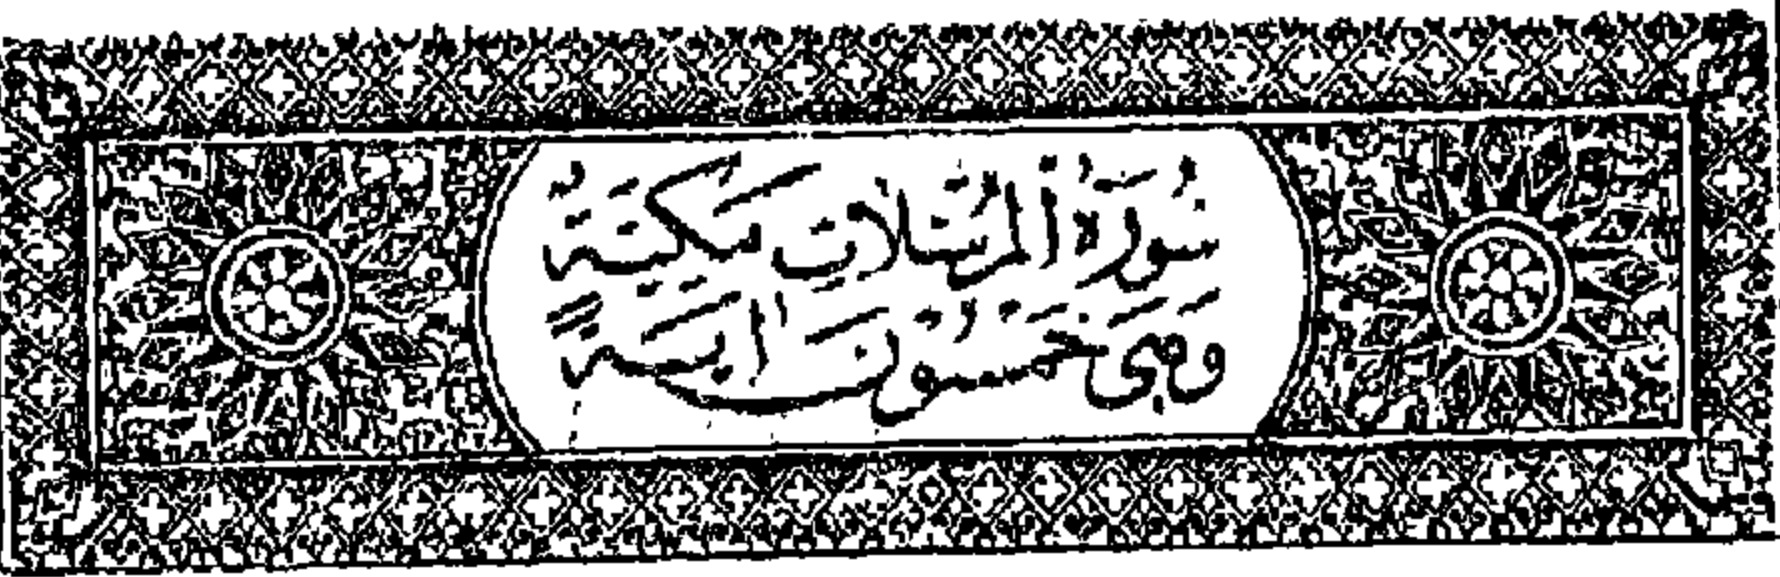 سُورَةُ الْمُرْسَلَاتِ مَكِّيَّةٌ
وَهِيَ خَمْسُونَ اٰيَةً